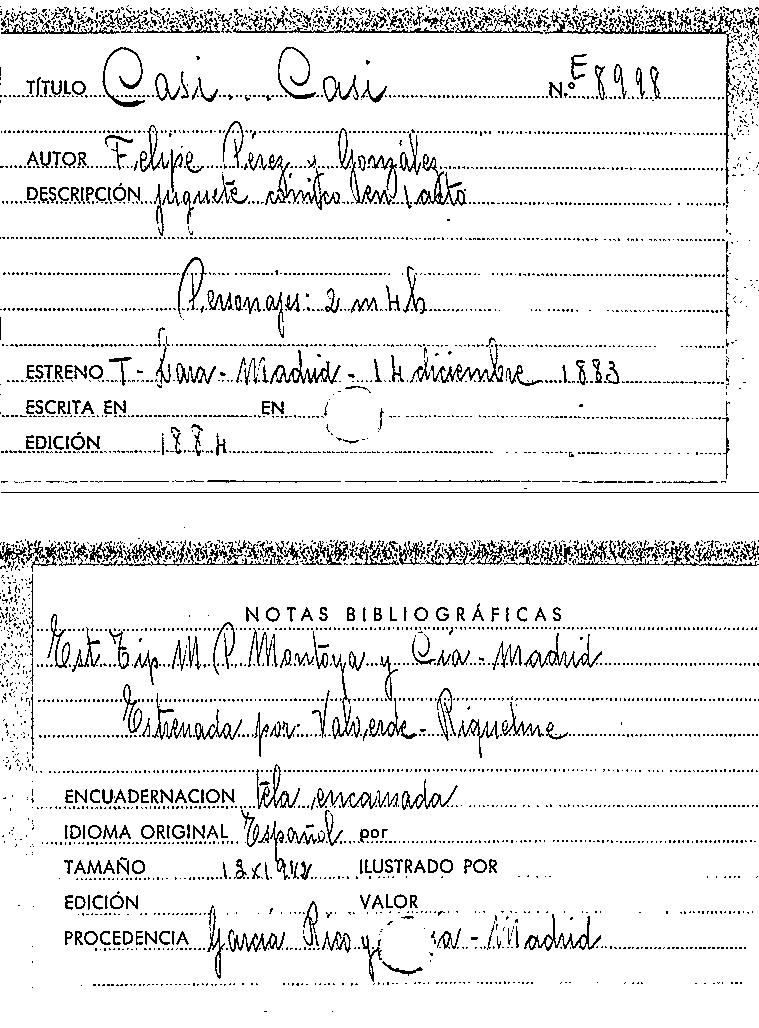 TÍTULO Casi... Casi N.º E 8998
AUTOR Felipe Pérez y González
DESCRIPCIÓN juguete cómico en 1 acto
Personajes: 2 m 4 h
ESTRENO T - Lara - Madrid - 14 diciembre 1883
ESCRITA EN EN
EDICIÓN 1884
NOTAS BIBLIOGRÁFICAS
Est Tip M P Montoya y Cía - Madrid
Estrenada por: Valverde - Riquelme
ENCUADERNACION tela encarnada
IDIOMA ORIGINAL Español por
TAMAÑO 13x19 ILUSTRADO POR
EDICIÓN VALOR
PROCEDENCIA García Rico y - Madrid